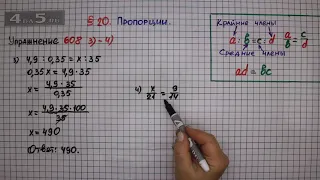 4 на 5.ru
§ 20. Пропорции.
Упражнение 608 3)-4)
3) 4,9 : 0,35 = x : 35
0,35x = 4,9 · 35
x = 4,9 · 35 / 0,35
x = 4,9 · 35 · 100 / 35
x = 490
Ответ: 490.
4) x/21 = 9/14
Крайние члены
a : b = c : d
a/b = c/d
Средние члены
ad = bc